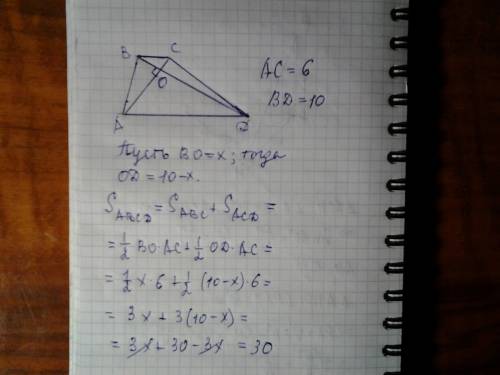 B C
O
A D
AC = 6
BD = 10
Пусть BO = x; тогда
OD = 10 - x.
S_ABCD = S_ABC + S_ACD =
= 1/2 BO · AC + 1/2 OD · AC =
= 1/2 x · 6 + 1/2 (10 - x) · 6 =
= 3x + 3(10 - x) =
= 3x + 30 - 3x = 30